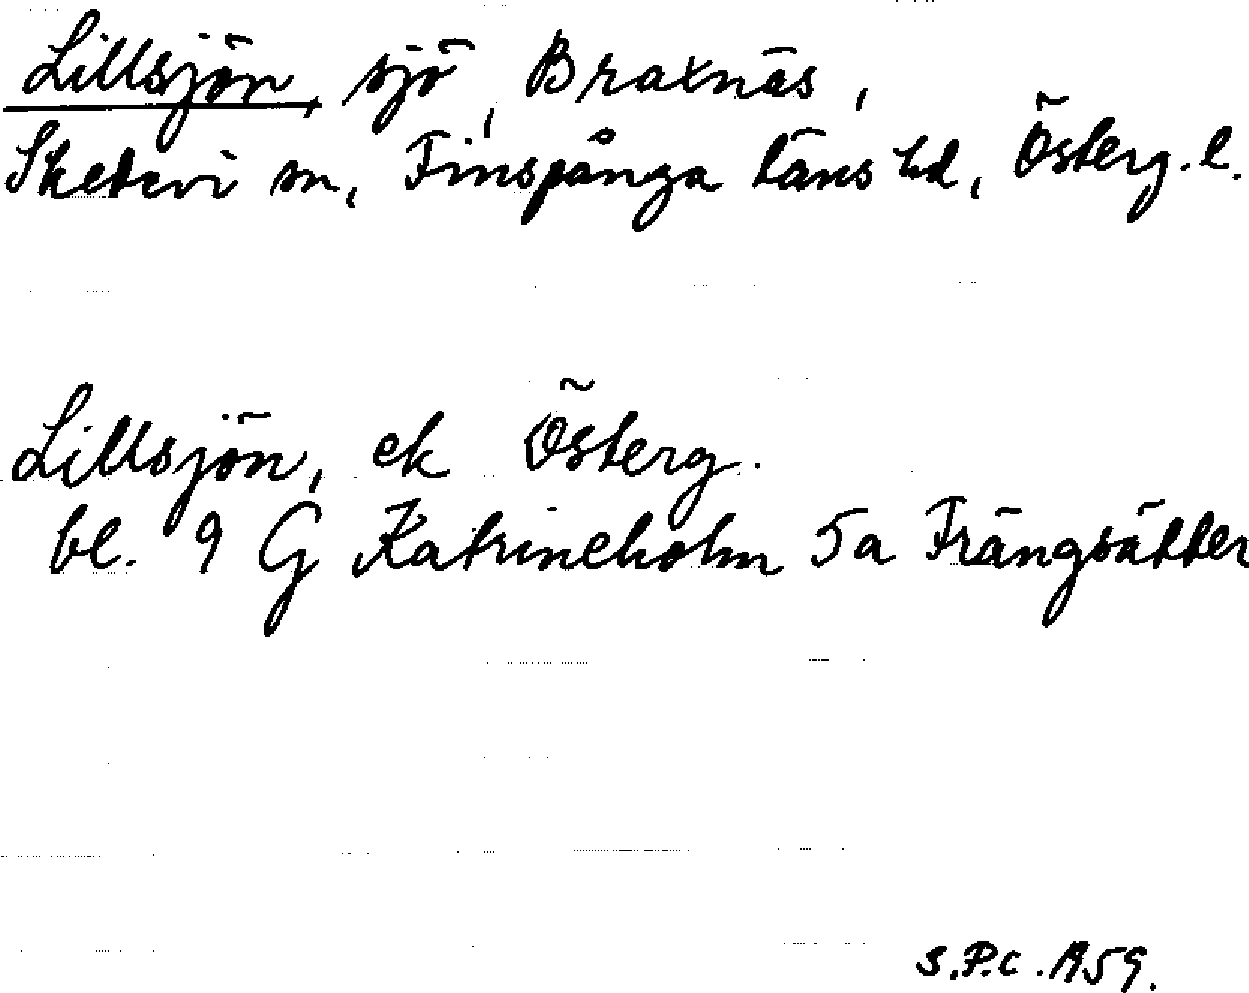 Lillsjön, sjö, Braxnäs,
Skedevi sn, Finspånga läns hd, Österg. l.
Lillsjön, ek Österg.
bl. 9 G Katrineholm 5a Frängsätter
S.P.C. A59.